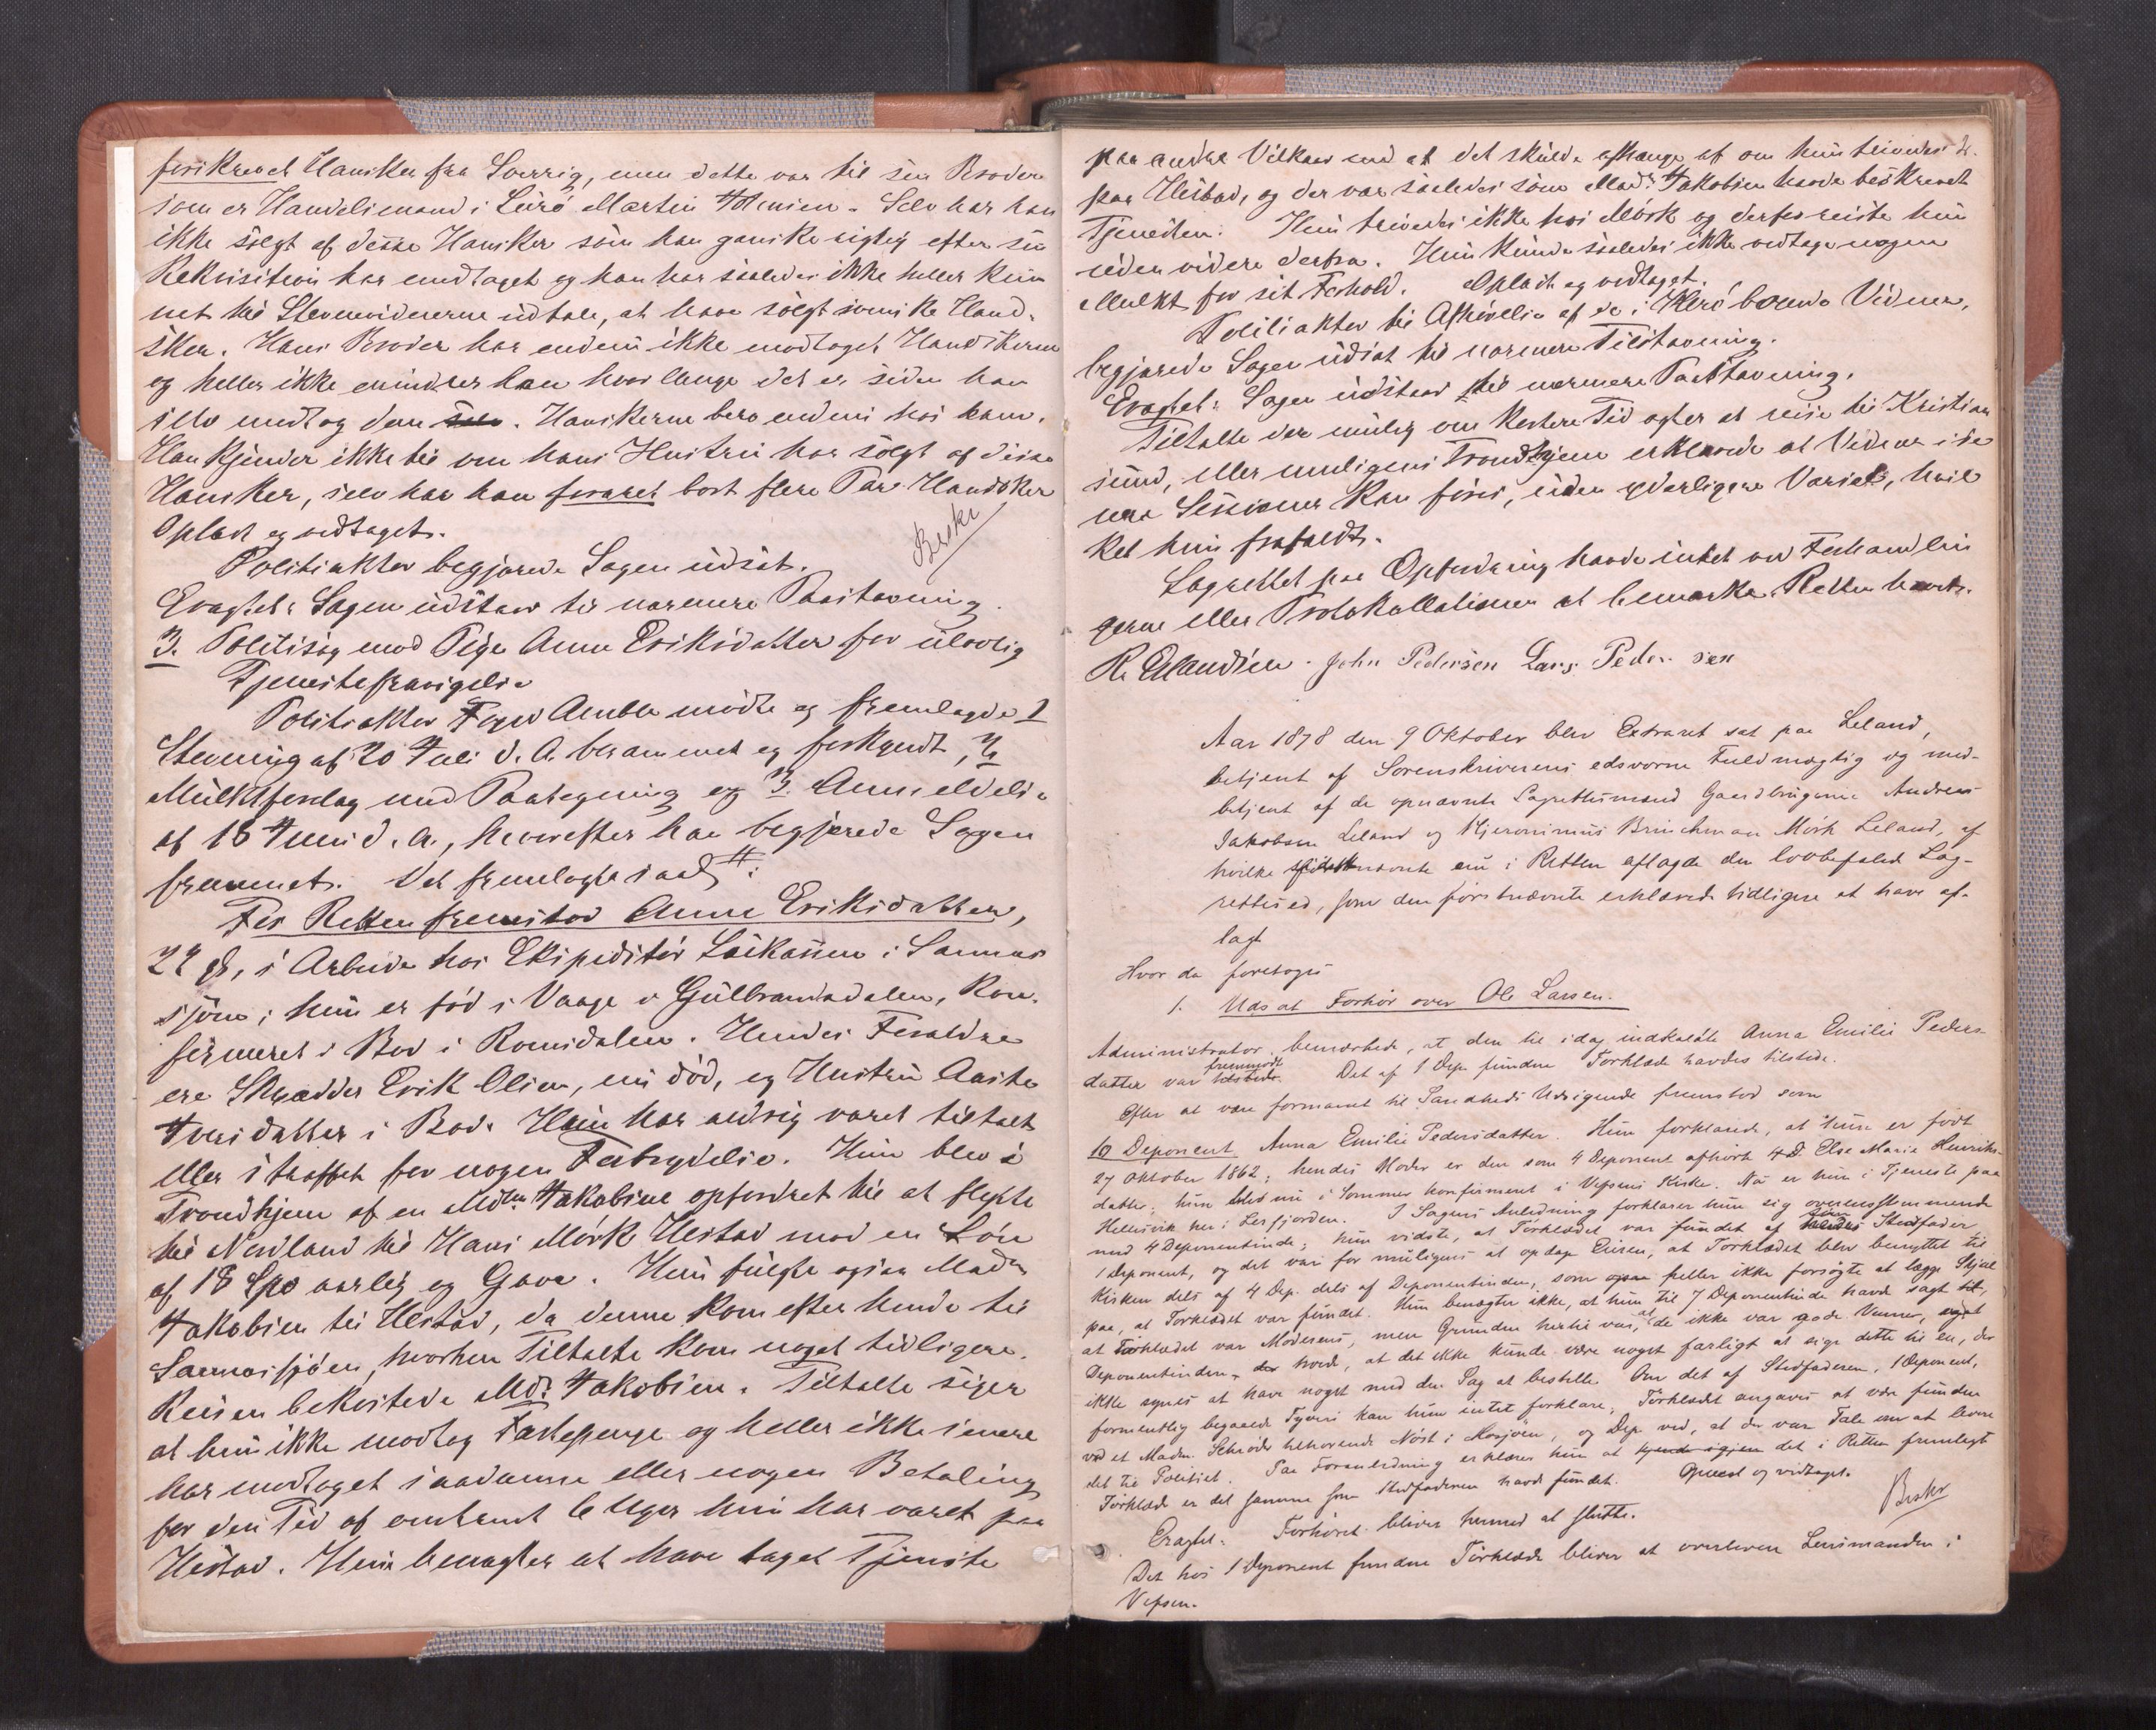 forskrevet Hansker fra Sverrig, men dette var til sin Broder
som er Handelsmand i Lurö Martin Hansen. Selv har han
ikke solgt af disse Hansker som han ganske rigtig efter sin
Rekvisition har modtaget og han har saaledes ikke heller kun
net til Stevnevidnerne udtale, at have solgt svenske Hand-
sker. Hans Broder har endnu ikke modtaget Handskerne
og heller ikke erindrer han hvor længe det er siden han
selv modtog dem. Hanskerne bero endnu hos ham.
Han kjender ikke til om hans Hustru har solgt af disse
Hansker, selv har han foræret bort flere Par Handsker
Oplæst og vedtaget.
Beskr
Politiaktor begjærede Sagen udsat.
Eragtet: Sagen udstaar til nærmere Paastævning.
3. Politisag mod Pige Anne Eriksdatter for ulovlig
Tjenestefravigelse
Politiaktor Foged Amble mødte og fremlagde 1
Stevning af 20 Juli d. A. berammet og forkyndt, 2
Mulktforelag med Paategning og 3. Anmeldelse
af 18 Juni d. A., hvorefter han begjærede Sagen
fremmet. Det fremlagte saal:
For Retten fremstod Anne Eriksdatter,
22 Aar, i Arbeide hos Ekspeditør Laukassen i Sannæs
sjøen; hun er fød i Vaage i Gulbrandsdalen, Kon-
firmeret i Bod i Romsdalen. Hendes Forældre
ere Skrædder Erik Olsen, nu død, og Hustru Aaste
Iversdatter i Bod. Hun har aldrig været tiltalt
eller straffet for nogen Forbrydelse. Hun blev i
Trondhjem af en Mdm. Jakobsen opfordret til at flytte
til Nordland til Hans Mørk Hestad mod en Løn
af 18 Spd aarlig og Gave. Hun fulgte ogsaa Madm
Jakobsen til Hestad, da denne kom efter hende til
Sannæssjøen, hvorhen Tiltalte kom noget tidligere.
Reisen bekostede Mdm. Jakobsen. Tiltalte siger
at hun ikke modtog Fæstepenge og heller ikke senere
har modtaget saadanne eller nogen Betaling
for den Tid af omtrent 6 Uger hun har været paa
Hestad. Hun benægter at have taget Tjeneste
paa andre Vilkaar end at det skulde afhænge af om hun trivedes
paa Hestad, og der var saaledes som Madm. Jakobsen havde beskrevet
Tjenesten. Hun trivedes ikke hos Mørk og derfor reiste hun
uden videre derfra. Hun kunde saaledes ikke vedtage nogen
Mulkt for sit Forhold. Oplæst og vedtaget.
Politiaktor til Afhørelse af de i Herø boende Vidner,
begjærede Sagen udsat til nærmere Tilstævning.
Eragtet: Sagen udstaar til nærmere Paastævning.
Tiltalte der mulig om kortere Tid agter at reise til Kristian
sund, eller muligens Trondhjem erklærede at Vidner i se
nere Sessioner kan føres, uden yderligere Varsel, hvil
ket hun frafaldt.
Lagrettet paa Opfordring havde intet ved Forhandlin
gerne eller Protokollationen at bemærke. Retten hævet.
R. Erlandsen. John Pedersen Lars Pedersen
Aar 1878 den 9 Oktober blev Extraret sat paa Leland,
betjent af Sorenskriverens edsvorne Fuldmægtig og med-
betjent af de opnævnte Lagrettesmænd Gaardbrugerne Andreas
Jakobsen Leland og Hjeronimus Brinchman Mörk Leland, af
hvilke sidstnævnte nu i Retten aflagde den lovbefalede Lag-
rettesed, som den førstnævnte erklærede tidligere at have af-
lagt
Hvor da foretoges
1. Udsat Forhør over Ole Larsen.
Administrator bemærkede, at den til idag indkaldte Anna Emilie Peders-
datter var fremmødt. Det af 1 Dep. fundne Tørklæde havdes tilstede.
Efter at være formanet til Sandheds Udsigende fremstod som
10 Deponent Anna Emilie Pedersdatter. Hun forklarede, at hun er født
27 Oktober 1862; hendes Moder er den som 4 Deponent afhørte 4 D. Else Marie Henriks-
datter; hun blev nu i Sommer konfirmeret i Vefsens Kirke. Nu er hun i Tjeneste paa
Hellesvik her i Lerfjorden. I Sagens Anledning forklarer hun sig overensstemmende
med 4 Deponentinde; hun vidste, at Tørklædet var fundet af sin Stedfader
1 Deponent, og det var for muligens at opdage Eieren, at Tørklædet blev benyttet til
Kirken dels af 4 Dep. dels af Deponentinden, som heller ikke forsøgte at lægge Skjul
paa, at Tørklædet var fundet. Hun benægter ikke, at hun til 7 Deponentinde havde sagt,
at Tørklædet var Moderens, men Grunden hertil var, at de ikke var gode Venner, og at
Deponentinden troede, at det ikke kunde være noget farligt at sige dette til en, der
ikke synes at have noget med den Sag at bestille. Om det af Stedfaderen, 1 Deponent,
formentlig begaaede Tyveri kan hun intet forklare; Tørklædet angaves at være funden
ved et Madm. Schrøder tilhørende Nøst i Mosjøen, og Dep. ved, at der var Tale om at levere
det til Politiet. Paa Foranledning erklærer hun at det i Retten fremlagte
Tørklæde er det samme som Stedfaderen havde fundet. Oplæst og vedtaget.
Beskr
Eragtet: Forhøret bliver hermed at slutte.
Det hos 1 Deponent fundne Tørklæde bliver at overlevere Lensmanden i
Vefsen.